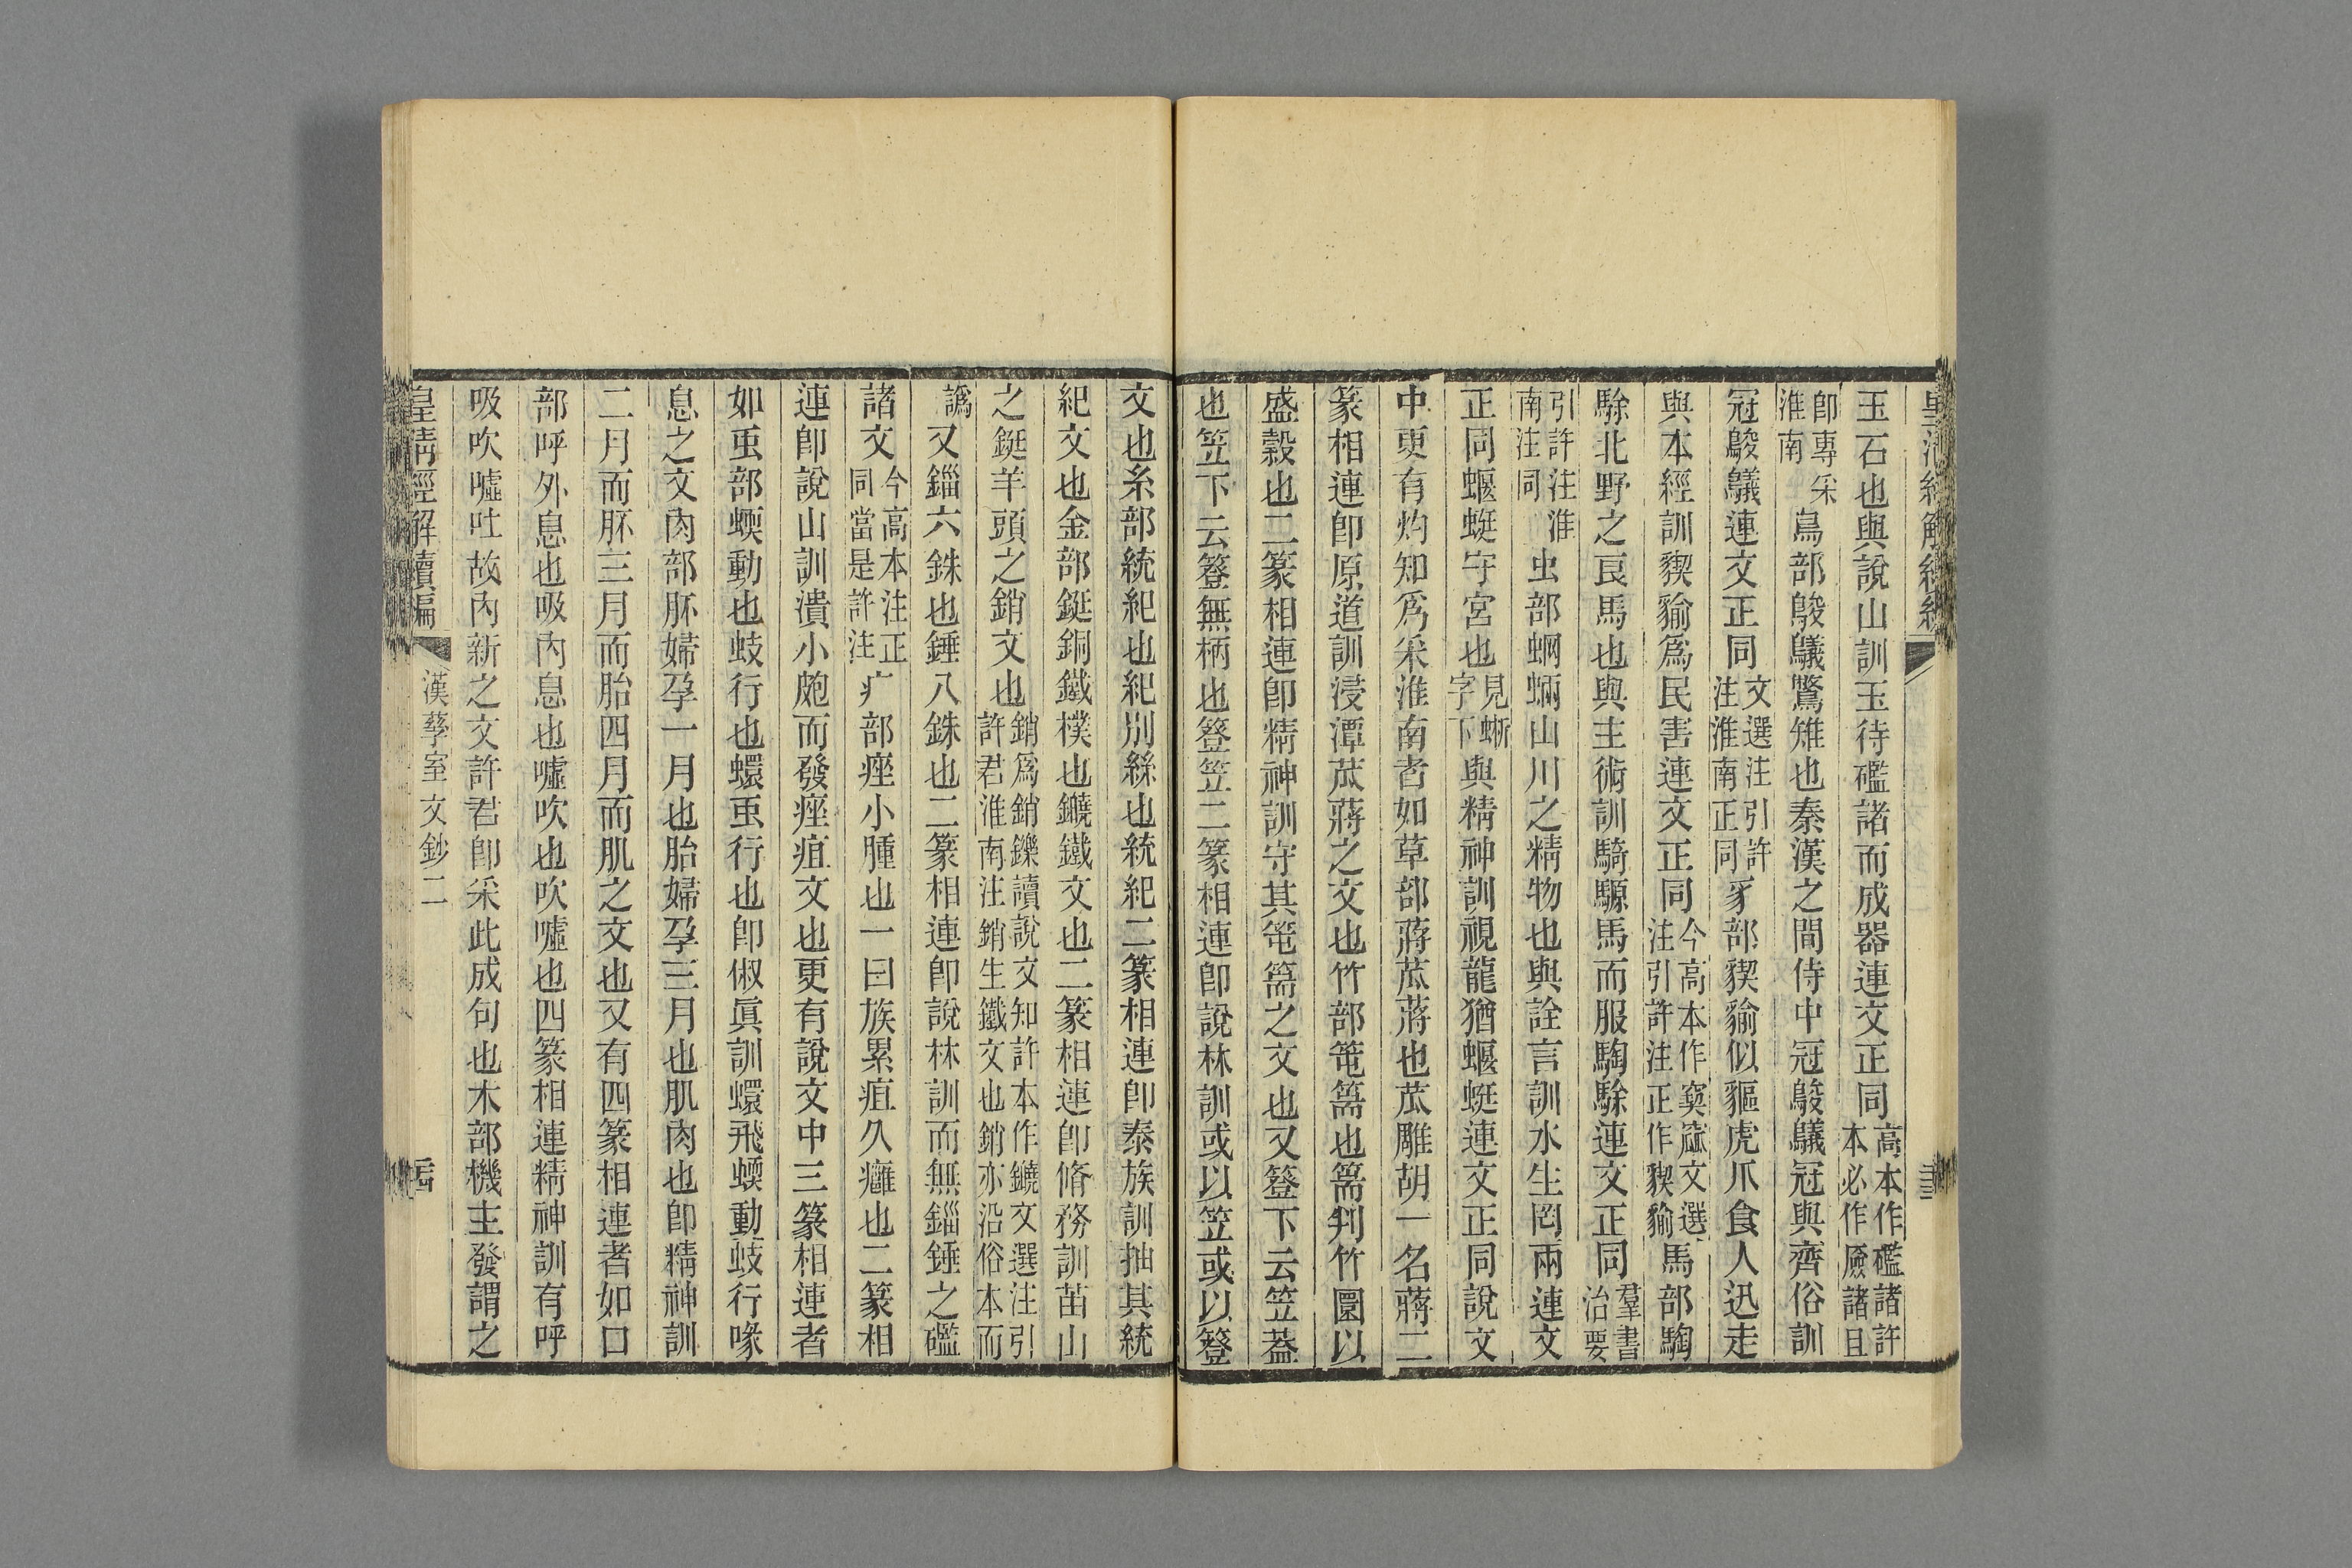 玉石也與說山訓玉待礛諸而成器連文正同高本作礛諸許本必作厱諸且
卽專采淮南鳥部鵔鸃鷩雉也秦漢之間侍中冠鵔鸃冠與齊俗訓
冠鵔鸃連文正同文選注引許注淮南正同豸部貏貐似貙虎爪食人迅走
與本經訓猰貐爲民害連文正同今高本作窫窳文選注引許注正作猰貐馬部騊
駼北野之良馬也與主術訓騎騵馬而服騊駼連文正同羣書治要
引許注淮南注同虫部蜽蜽山川之精物也與詮言訓水生罔兩連文
正同蝘蜓守宮也見蜥字下與精神訓視龍猶蝘蜓連文正同說文
中更有灼知爲采淮南者如草部蔣苽蔣也苽雕胡一名蔣二
篆相連卽原道訓浸潭苽蔣之文也竹部篅篅也篅判竹圜以
盛穀也二篆相連卽精神訓守其篅之文也又簦下云笠蓋
也笠下云簦無柄也簦笠二篆相連卽說林訓或以笠或以簦
文也糸部統紀也紀別絲也統紀二篆相連卽泰族訓抽其統
紀文也金部鋌銅鐵樸也鐃鐵文也二篆相連卽脩務訓苗山
之鋌羊頭之銷文也銷爲銷鑠讀說文知許本作鐃文選注引許君淮南注銷生鐵文也銷亦沿俗本而
譌又錙六銖也錘八銖也二篆相連卽說林訓而無錙錘之礛
諸文今高本注正同當是許注疒部痤小腫也一曰族累疽久癰也二篆相
連卽說山訓潰小皰而發痤疽文也更有說文中三篆相連者
如虫部蝡動也蚑行也蠉虫行也卽俶眞訓蠉飛蝡動蚑行喙
息之文肉部胚婦孕一月也胎婦孕三月也肌肉也卽精神訓
二月而胚三月而胎四月而肌之文也又有四篆相連者如口
部呼外息也吸內息也噓吹也吹噓也四篆相連精神訓有呼
吸吹噓吐故內新之文許君卽采此成句也木部機主發謂之
皇淸經解續編 漢孳室文鈔二